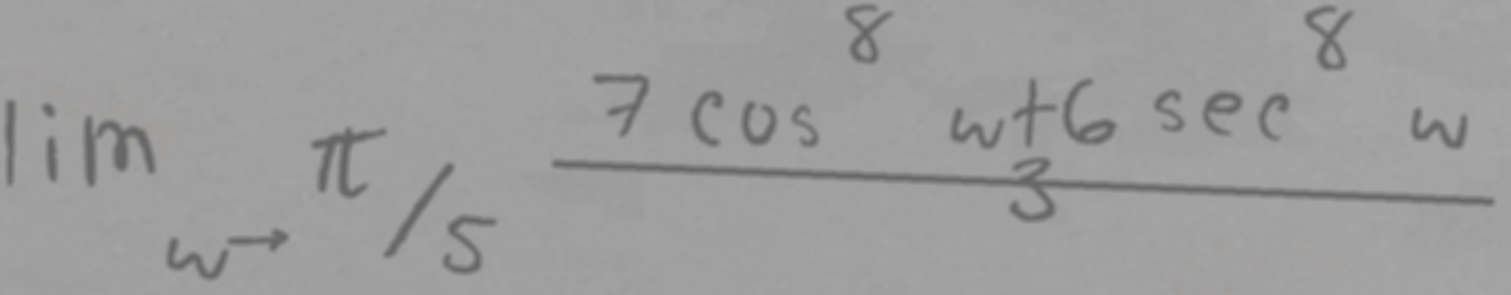 lim w→π/5 (7 cos^8 w+6 sec^8 w)/3